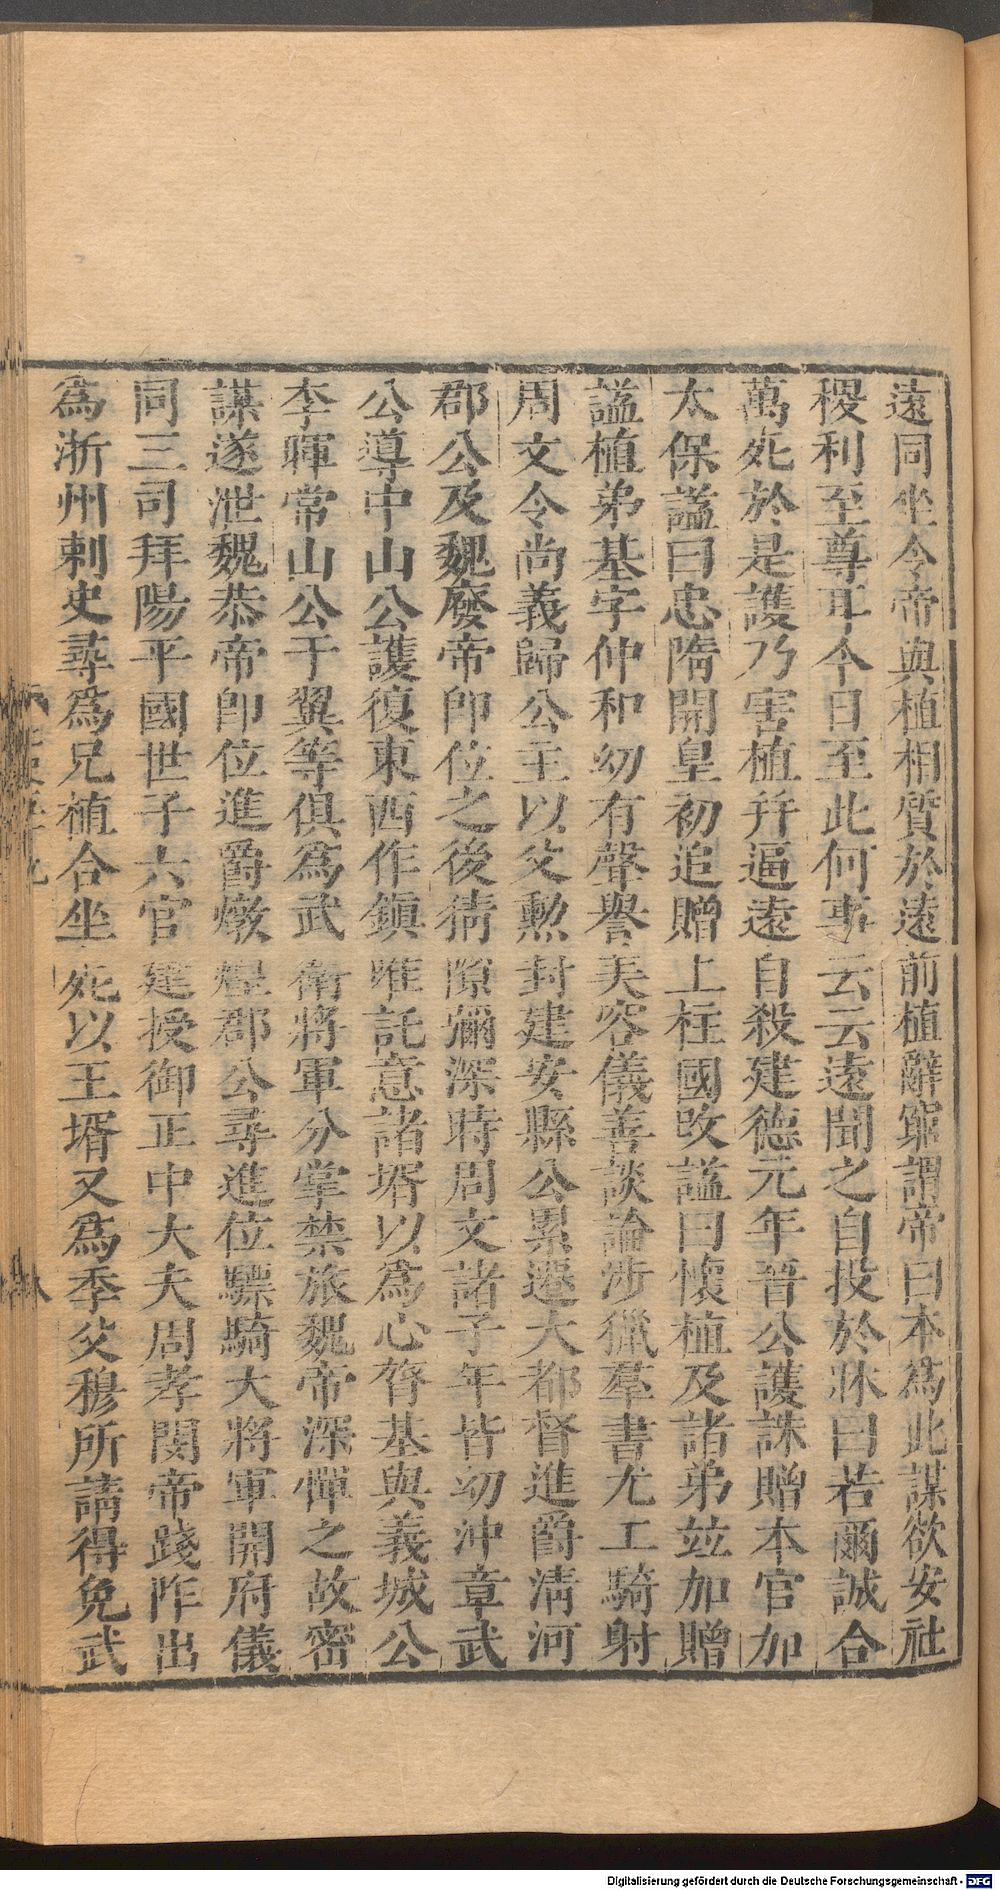 遠同坐令帝與植相質於遠前植辭窮謂帝曰本為此謀欲安社
稷利至尊耳今日至此何事云云遠聞之自投於牀曰若爾誠合
萬死於是護乃害植幷逼遠自殺建德元年晉公護誅贈本官加
太保謚曰忠隋開皇初追贈上柱國改謚曰懷植及諸弟竝加贈
謚植弟基字仲和幼有聲譽美容儀善談論涉獵羣書尤工騎射
周文令尚義歸公主以父勲封建安縣公累遷大都督進爵清河
郡公及魏廢帝即位之後猜隙彌深時周文諸子年皆幼沖章武
公導中山公護復東西作鎮唯託意諸壻以為心膂基與義城公
李暉常山公于翼等俱為武衛將軍分掌禁旅魏帝深憚之故密
謀遂泄魏恭帝即位進爵燉煌郡公尋進位驃騎大將軍開府儀
同三司拜陽平國世子六官建授御正中大夫周孝閔帝踐阼出
為浙州刺史尋為兄植合坐死以王壻又為季父穆所請得免武
Digitalisierung gefördert durch die Deutsche Forschungsgemeinschaft - DFG